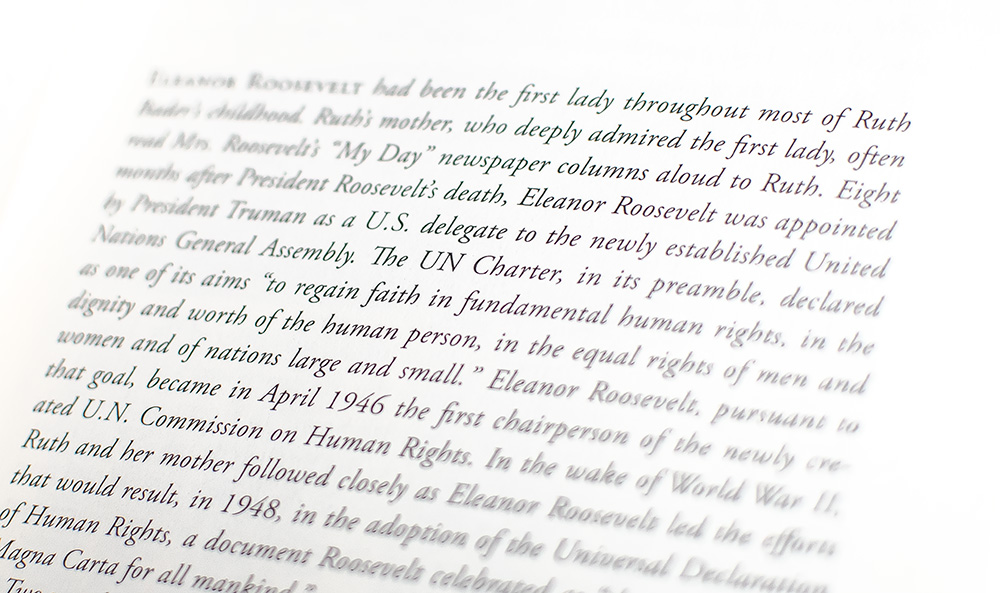 ELEANOR ROOSEVELT had been the first lady throughout most of Ruth
Bader's childhood. Ruth's mother, who deeply admired the first lady, often
read Mrs. Roosevelt's "My Day" newspaper columns aloud to Ruth. Eight
months after President Roosevelt's death, Eleanor Roosevelt was appointed
by President Truman as a U.S. delegate to the newly established United
Nations General Assembly. The UN Charter, in its preamble, declared
as one of its aims "to regain faith in fundamental human rights, in the
dignity and worth of the human person, in the equal rights of men and
women and of nations large and small." Eleanor Roosevelt, pursuant to
that goal, became in April 1946 the first chairperson of the newly cre-
ated U.N. Commission on Human Rights. In the wake of World War II,
Ruth and her mother followed closely as Eleanor Roosevelt led the efforts
that would result, in 1948, in the adoption of the Universal Declaration
of Human Rights, a document Roosevelt celebrated as
Magna Carta for all mankind."